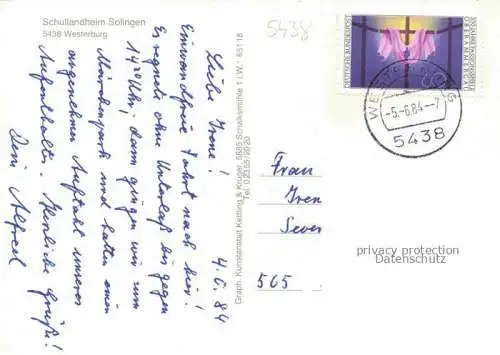 Schullandheim Solingen
5438 Westerburg
5438
4.6.84
Liebe Irene!
Einwandfreie Fahrt nach hier!
Es regnete ohne Unterlaß bis gegen
14³⁰ Uhr, dann gingen wir zum
Märchenpark und hatten einen
angenehmen Auftakt unseres
Aufenthaltes. Herzliche Grüße!
Dein Alfred
Graph. Kunstanstalt Kettling & Krüger, 5885 Schalksmühle 1 i.W. 65118
Tel. 02355/2020
DEUTSCHE BUNDESPOST
-5.-6.84--7
5438
Frau
Iren
Sever
565
privacy protection
Datenschutz